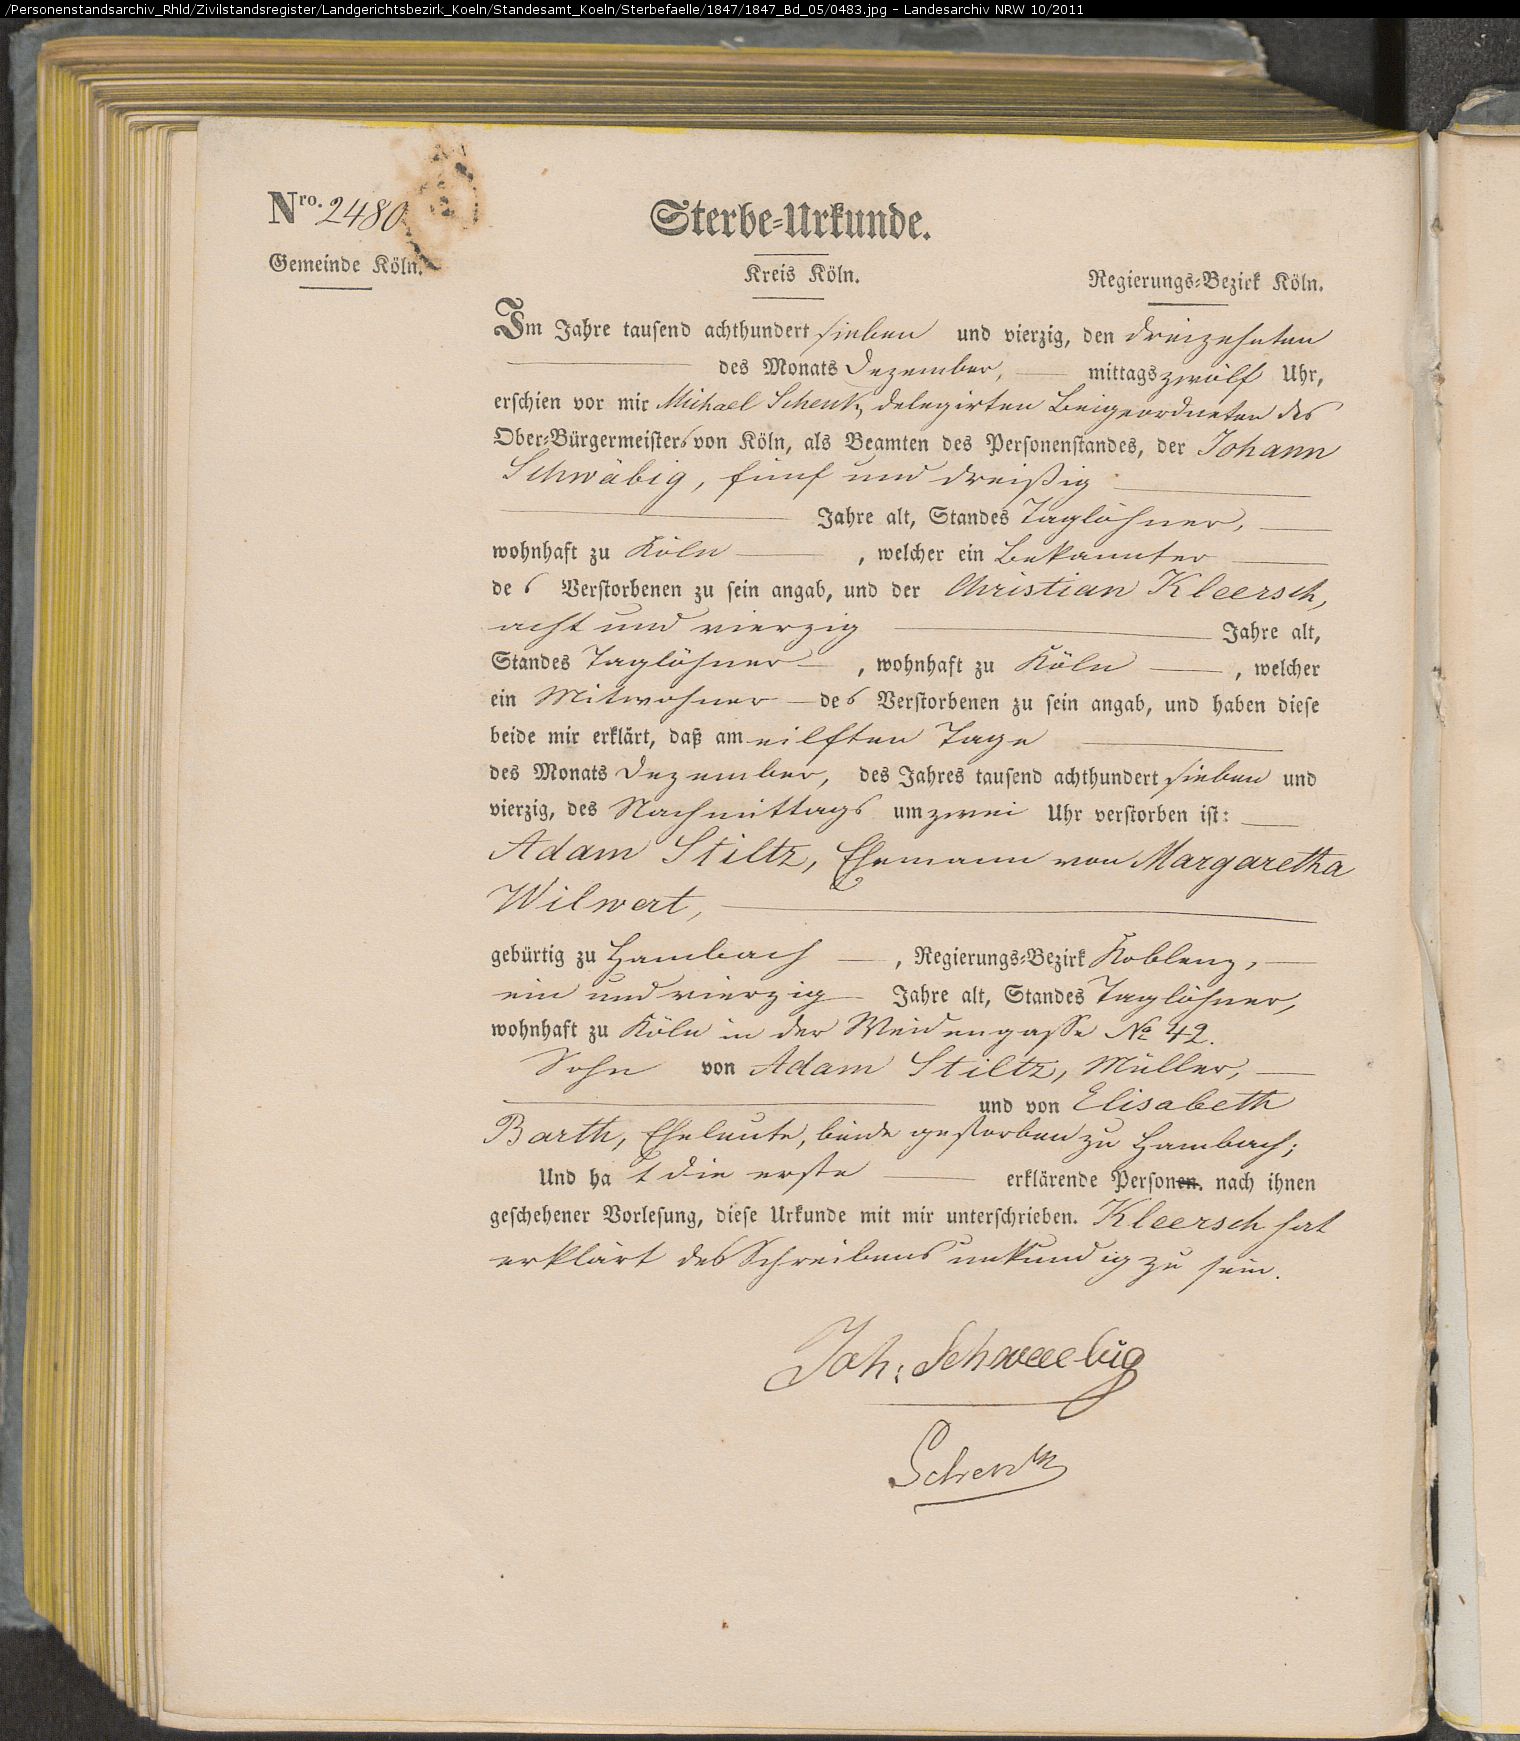 /Personenstandsarchiv_Rhld/Zivilstandsregister/Landgerichtsbezirk_Koeln/Standesamt_Koeln/Sterbefaelle/1847/1847_Bd_05/0483.jpg - Landesarchiv NRW 10/2011
Nro. 2480
Sterbe-Urkunde.
Gemeinde Köln.
Kreis Köln.
Regierungs-Bezirk Köln.
Im Jahre tausend achthundert sieben und vierzig, den dreizehnten
des Monats Dezember, mittags zwölf Uhr,
erschien vor mir Michael Schenk, delegirten Beigeordneten des
Ober-Bürgermeisters von Köln, als Beamten des Personenstandes, der Johann
Schwäbig, fünf und dreißig
Jahre alt, Standes Taglöhner,
wohnhaft zu Köln, welcher ein Bekannter
des Verstorbenen zu sein angab, und der Christian Kleersch,
acht und vierzig Jahre alt,
Standes Taglöhner, wohnhaft zu Köln, welcher
ein Mitwohner des Verstorbenen zu sein angab, und haben diese
beide mir erklärt, daß am eilften Tage
des Monats Dezember, des Jahres tausend achthundert sieben und
vierzig, des Nachmittags um zwei Uhr verstorben ist:
Adam Stiltz, Ehemann von Margaretha
Wilwert,
gebürtig zu Hambach, Regierungs-Bezirk Koblenz,
ein und vierzig Jahre alt, Standes Taglöhner,
wohnhaft zu Köln in der Weidengasse No 42.
Sohn von Adam Stiltz, Müller,
und von Elisabeth
Barth, Eheleute, beide gestorben zu Hambach;
Und hat die erste erklärende Personen. nach ihnen
geschehener Vorlesung, diese Urkunde mit mir unterschrieben. Kleersch hat
erklärt des Schreibens unkundig zu sein.
Joh: Schwaebig
Schenk